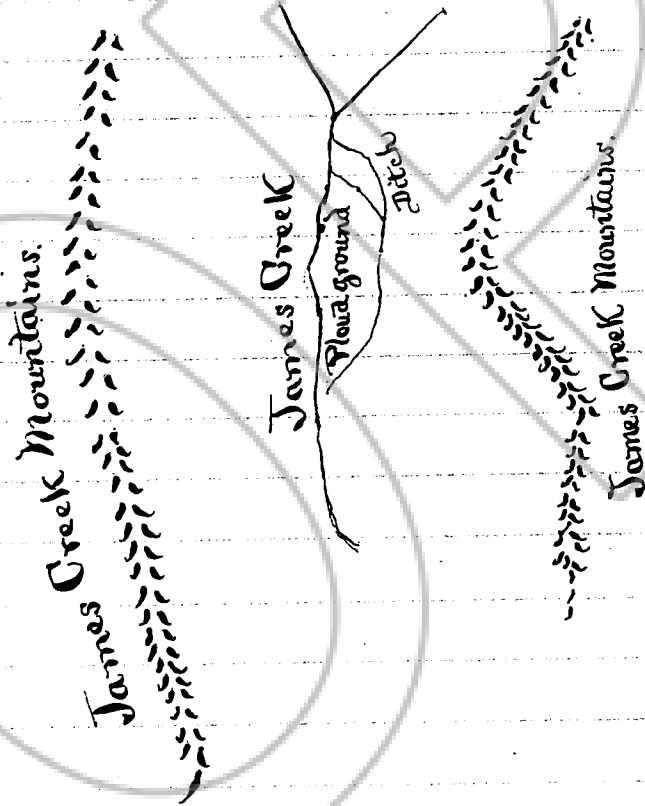 James Creek Mountains.
James Creek
Ploud ground
Ditch
James Creek Mountains.